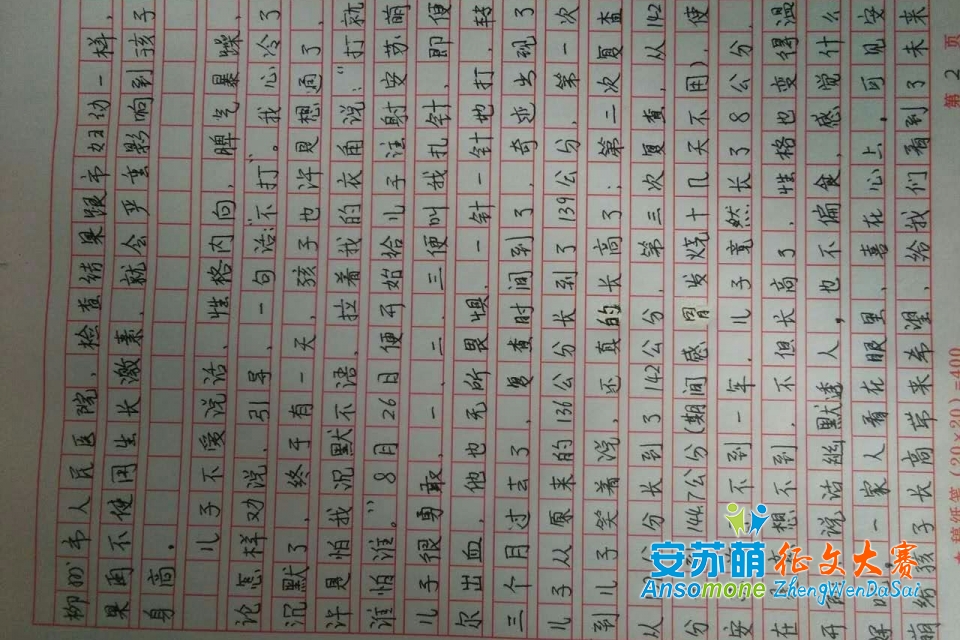 柳州市人民医院,检查结果跟市妇幼一样,
果再不使用生长激素,就会严重影响到孩子
身高。
儿子不爱说话、性格内向,脾气暴躁,
论怎样劝说、引导,一句话:"不打"。我心冷了
沉默了,终于有一天,孩子也许是想通了,
许是怕我沉默不语,拉着我的衣角说:"打就
谁怕谁。"8月26日便开始给儿子注射安苏萌
儿子很勇敢,一、二、三便叫我扎针,即便
尔出血,他也无所畏惧,一针一针地打,转
三个月过去了,复查时间到了,奇迹出现了
儿子从原来的136公分长到了139公分,第一次
到儿子笑着说,还真的长高了;第二次复查
从公分长到了142公分,第三次复查,从142
分144.7公分(期间感冒发烧十几天不用),使
安不到一年,儿子竟然长了8公分,
在想不到,不但长高了,性格也变得温
开说话幽默逗人,也不偏食,感觉什么
一家人看在眼里、喜在心上。可见安
萌给孩子长高带来希望,给我们看到了未来
(20×20)=400
第 2 页
安苏萌 征文大赛
Ansomone ZhengWenDaSai